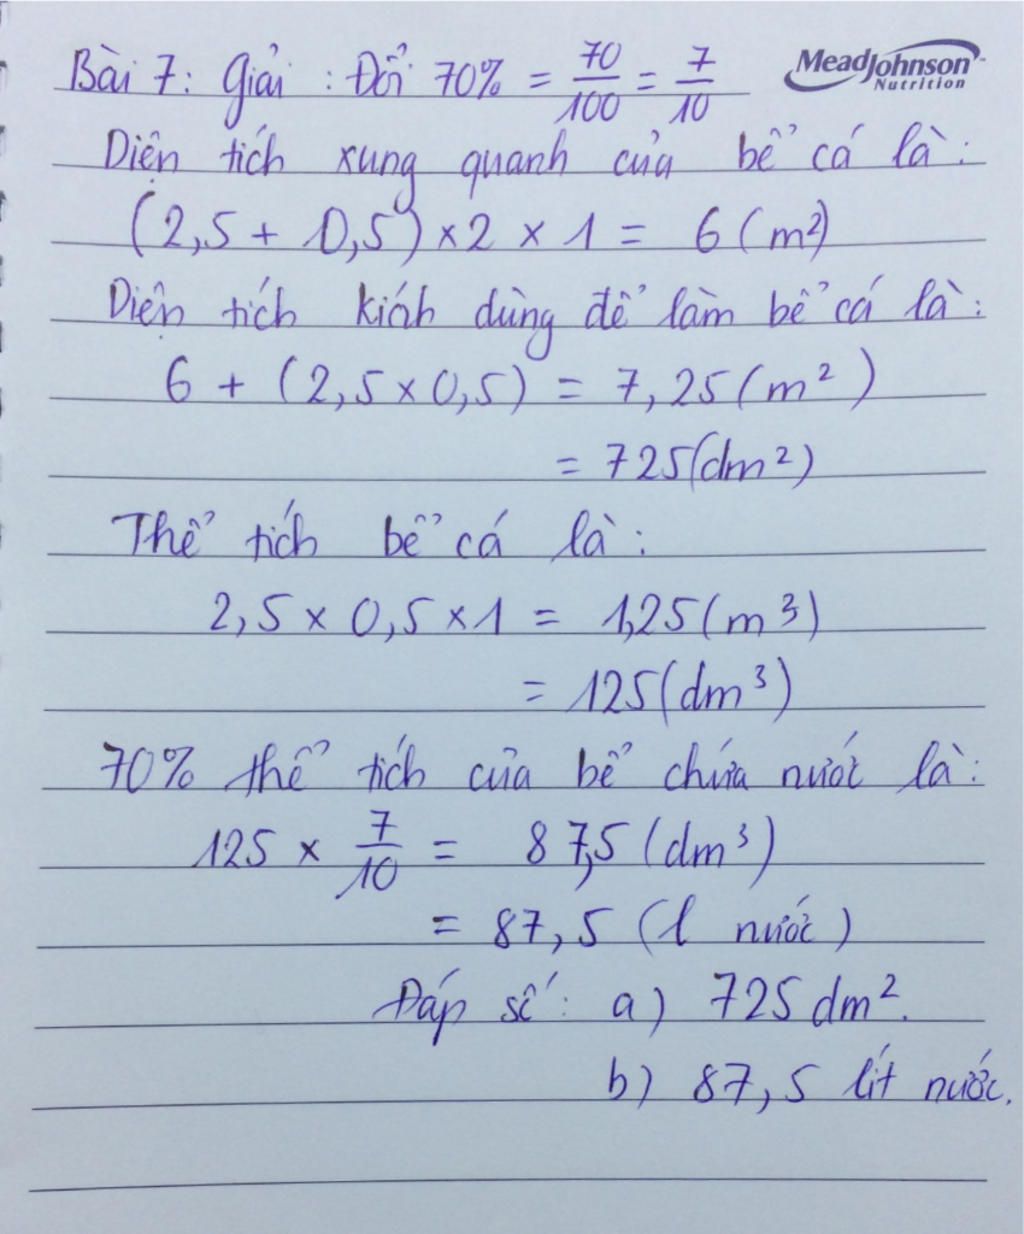 Bài 7: Giải : Đổi 70% = 70/100 = 7/10
MeadJohnson
Nutrition
Diện tích xung quanh của bể cá là:
(2,5 + 0,5) × 2 × 1 = 6 (m²)
Diện tích kính dùng để làm bể cá là:
6 + (2,5 × 0,5) = 7,25 (m²)
= 725 (dm²)
Thể tích bể cá là:
2,5 × 0,5 × 1 = 1,25 (m³)
= 125 (dm³)
70% thể tích của bể chứa nước là:
125 × 7/10 = 87,5 (dm³)
= 87,5 (l nước)
Đáp số: a) 725 dm².
b) 87,5 lít nước.